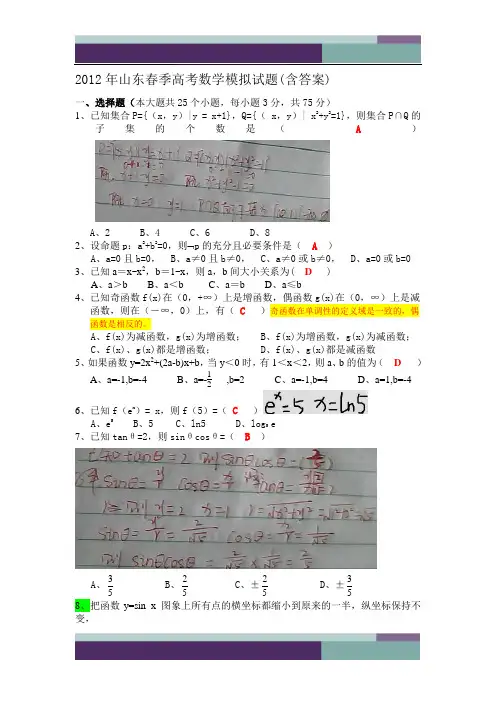 2012年山东春季高考数学模拟试题(含答案)
一、选择题（本大题共25个小题，每小题3分，共75分）
1、已知集合P={（x，y）|y = x+1}，Q={（ x，y）| x²+y²=1}，则集合P∩Q的
子集的个数是（ A ）
A、2 B、4 C、6 D、8
2、设命题p：a²+b²=0，则¬p的充分且必要条件是（ A ）
A、a=0且b=0， B、a≠0且b≠0， C、a≠0或b≠0， D、a=0或b=0
3、已知a＝x-x²，b＝1-x，则a，b间大小关系为( D )
A、a＞b B、a＜b C、a＝b D、a≤b
4、已知奇函数f(x)在（0，+∞）上是增函数，偶函数g(x)在（0，∞）上是减
函数，则在（－∞，0）上，有（ C ）奇函数在单调性的定义域是一致的，偶
函数是相反的。
A、f(x)为减函数，g(x)为增函数； B、f(x)为增函数，g(x)为减函数；
C、f(x)、g(x)都是增函数； D、f(x)、g(x)都是减函数
5、如果函数y=2x²+(2a-b)x+b，当y＜0时，有1＜x＜2，则a、b的值为（ D ）
A、a=-1,b=-4 B、a=-1/2 ,b=2 C、a=-1,b=4 D、a=1,b=-4
6、已知f（eˣ）= x，则f（5）=（ C ） eˣ=5 x=ln5
A、e⁵ B、5 C、ln5 D、log₅e
7、已知tanθ=2，则sinθcosθ=（ B ）
A、3/5 B、2/5 C、±2/5 D、±3/5
8、把函数y=sin x图象上所有点的横坐标都缩小到原来的一半，纵坐标保持不
变，